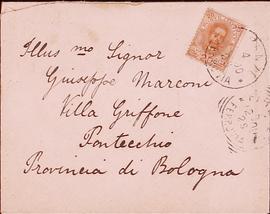 Illus mo Signor
Giuseppe Marconi
Villa Griffone
Pontecchio
Provincia di Bologna